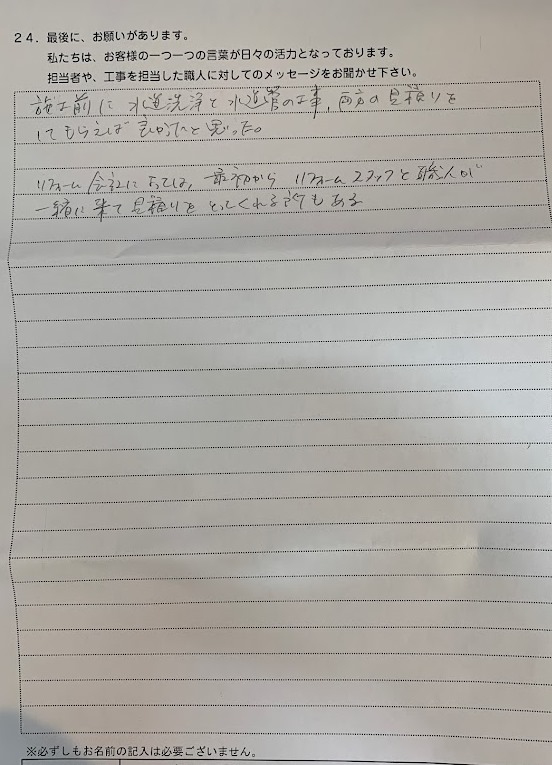 24. 最後に、お願いがあります。
私たちは、お客様の一つ一つの言葉が日々の活力となっております。
担当者や、工事を担当した職人に対してのメッセージをお聞かせ下さい。
施工前に 水道洗浄と水道管の工事, 両方の見積りを
してもらえば よかったと思った。
リフォーム会社によっては, 最初から リフォームスタッフと職人が
一緒に来て見積りを とってくれる所もある
※必ずしもお名前の記入は必要ございません。